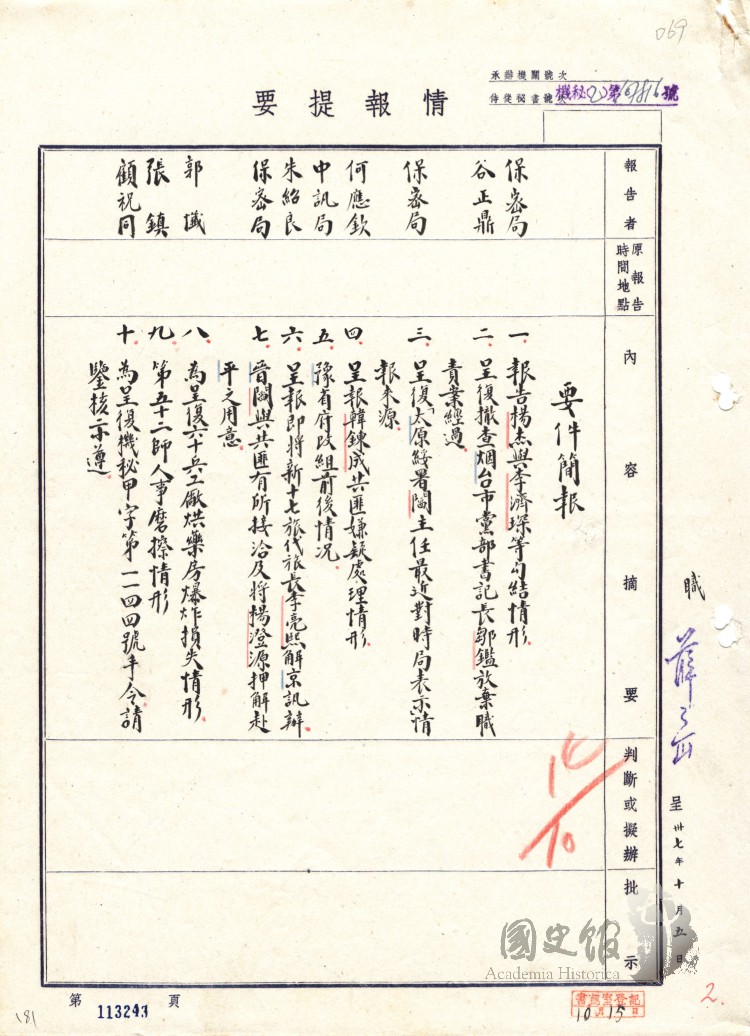 069
情報提要
承辦機關號次
侍從秘書號次
機秘(乙)第69816號
報告者
原報告時間地點
內容摘要
判斷或擬辦
批示
保密局
谷正鼎
保密局
何應欽
中訊局
朱紹良
保密局
郭懺
張鎮
顧祝同
要件簡報
一、報告楊杰與李濟琛等勾結情形。
二、呈復撤查烟台市黨部書記長鄒鑑放棄職
責案經過。
三、呈復「太原綏署閻主任最近對時局表示情
報來源
四、呈報韓鍊成共匪嫌疑處理情形。
五、豫省府改組前後情況。
六、呈報即將新十七旅代旅長李亮熙解京訊辦。
七、晉閻與共匪有所接洽及將楊澄源押解赴
平之用意。
八、為呈復六十兵工廠烘藥房爆炸損失情形。
九、第五十二師人事磨擦情形
十、為呈復機秘甲字第一一二四四號手令請
鑒核示遵。
職
呈
卅七年十月五日
14/10
國史館
Academia Historica
書蔻室登記
10月15日
2.
第 113243 頁
181